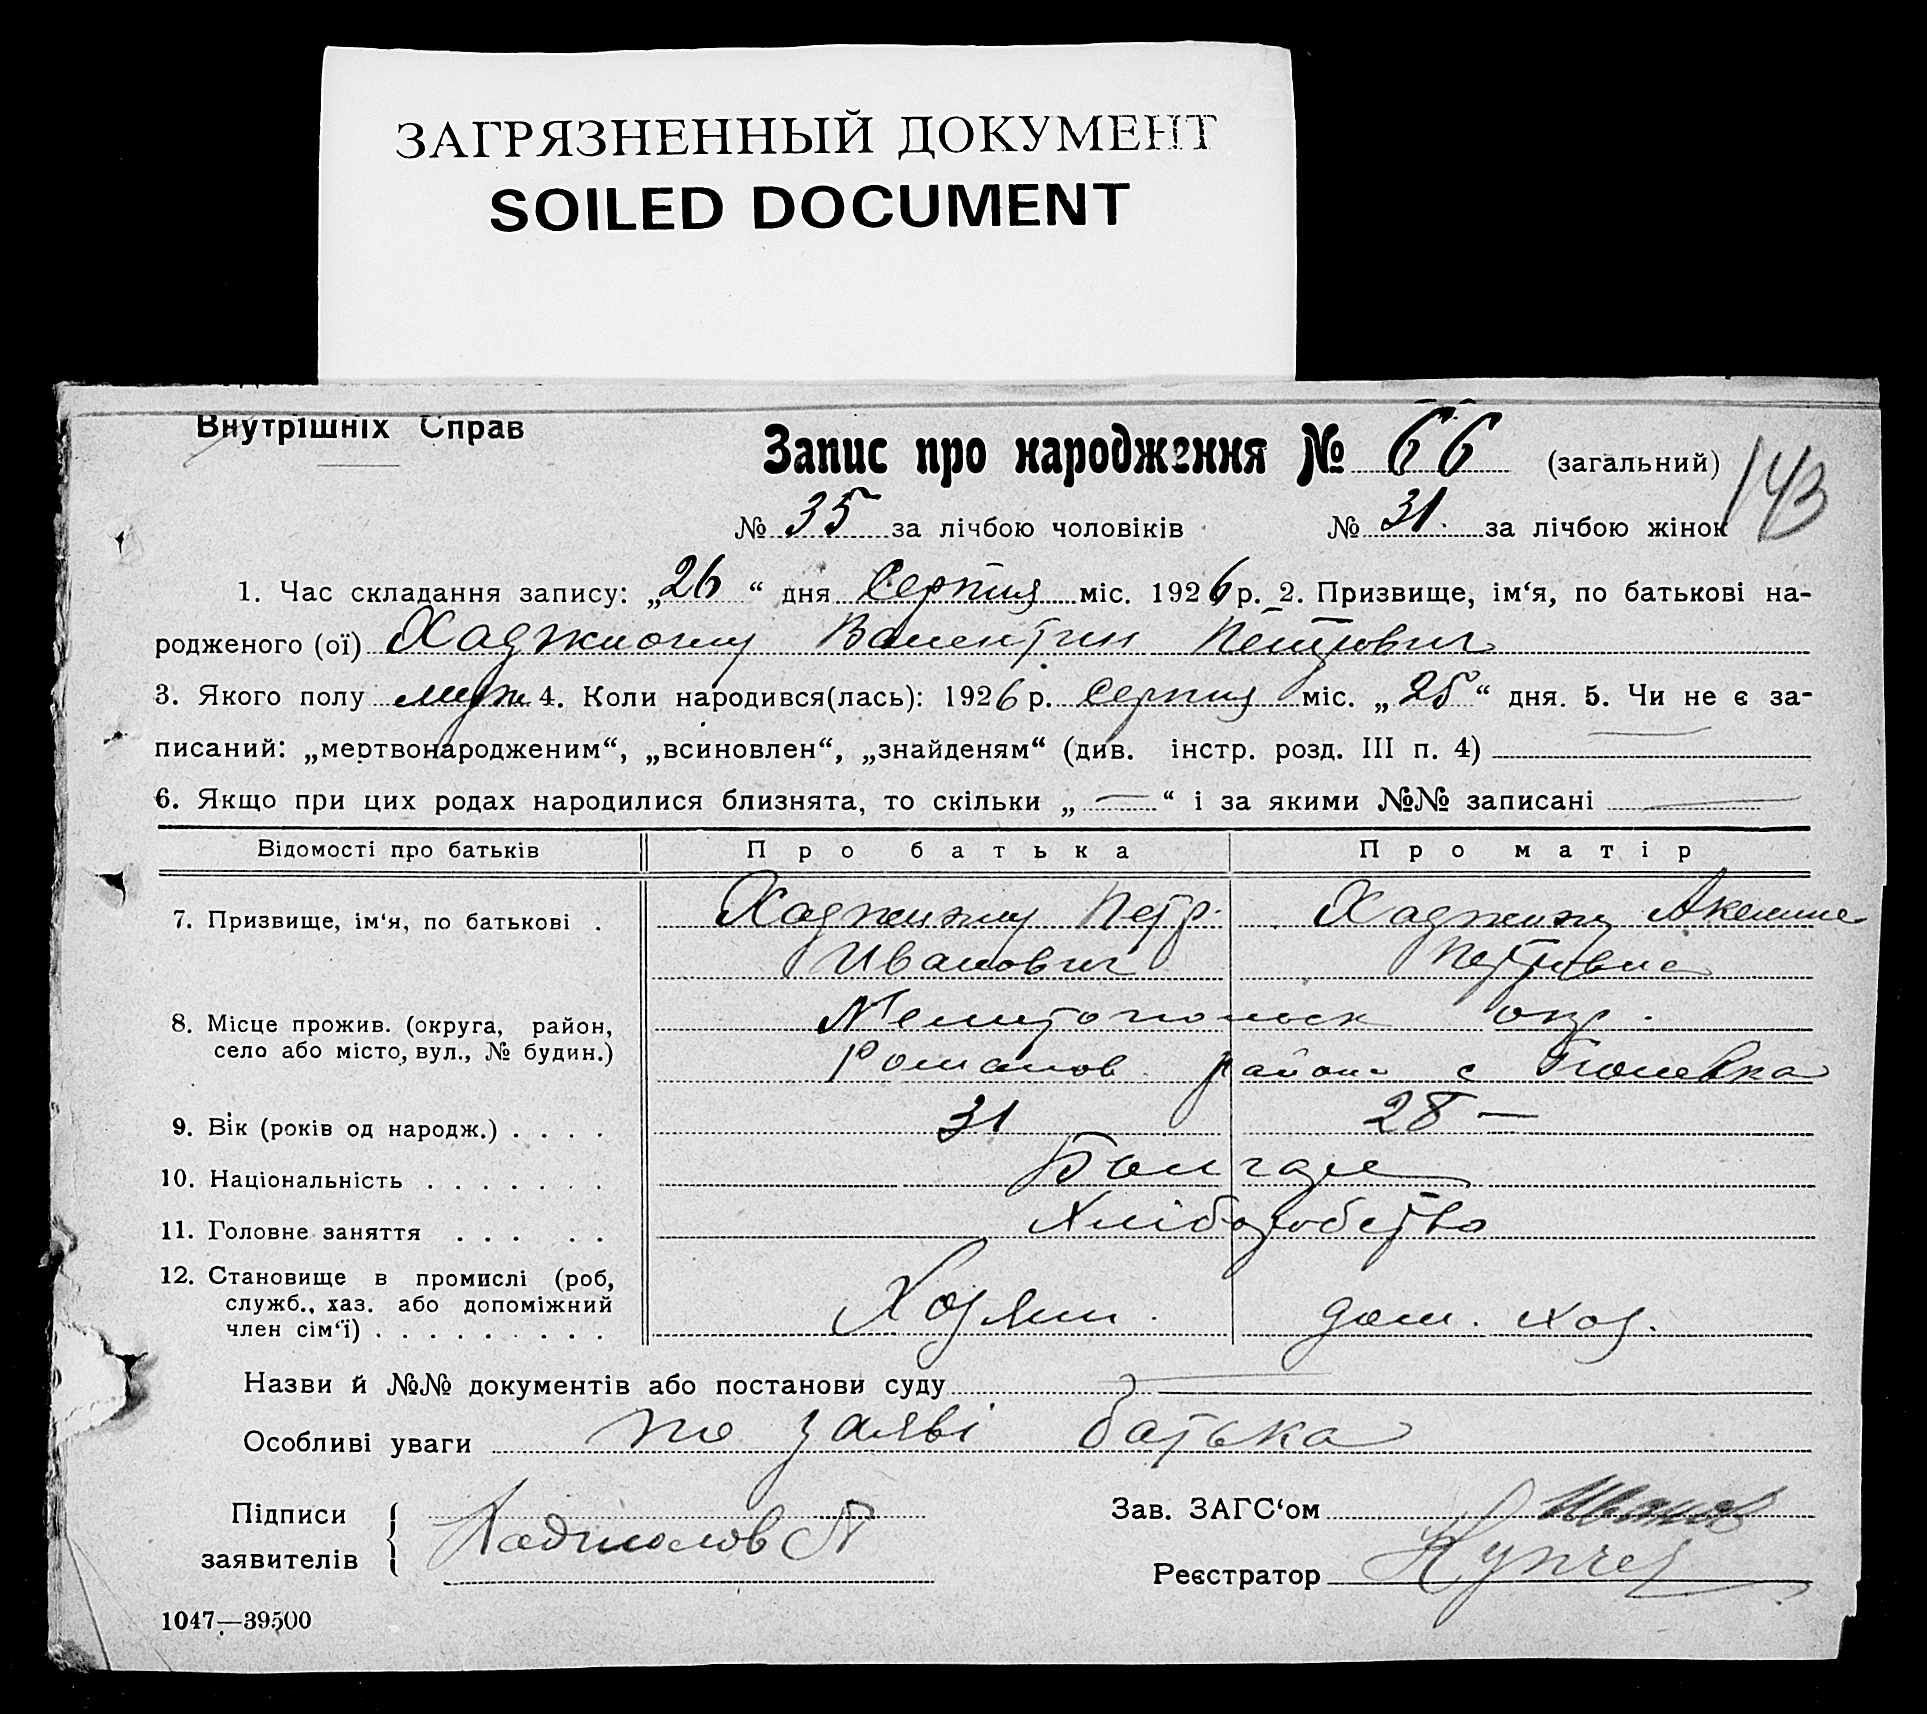 ЗАГРЯЗНЕННЫЙ ДОКУМЕНТ
SOILED DOCUMENT
Внутрішніх Справ
Запис про народження № 66 (загальний)
143
№ 35 за лічбою чоловіків № 31 за лічбою жінок
1. Час складання запису: „26“ дня Серпня міс. 1926 р. 2. Призвище, ім‘я, по батькові на-
родженого (ої) Валентин Петрович
3. Якого полу муж 4. Коли народився(лась): 1926 р. Серпня міс. „25“ дня. 5. Чи не є за-
писаний: „мертвонародженим“, „всиновлен“, „знайденям“ (див. інстр. розд. III п. 4) —
6. Якщо при цих родах народилися близнята, то скільки „—“ і за якими №№ записані —
Відомості про батьків Про батька Про матір
7. Призвище, ім‘я, по батькові . Петр.
Иванович Петровна
8. Місце прожив. (округа, район, Мелитопольск окр.
село або місто, вул., № будин.) Романов района с
9. Вік (років од народж.) . . . . 31 28 —
10. Національність . . . . . . . Болгаре
11. Головне заняття . . . . . Хліборобство
12. Становище в промислі (роб,
служб., хаз. або допоміжний
член сім‘ї) . . . . . . . . . Хозяин. дом. хоз.
Назви й №№ документів або постанови суду —
Особливі уваги по заяві батька
Підписи
заявителів
Зав. ЗАГС‘ом
Реєстратор
1047—39500